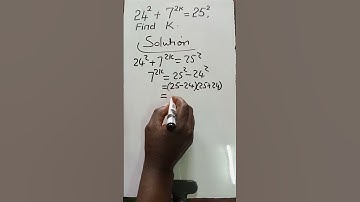 24² + 7²ᴷ = 25².
Find K.
Solution
24² + 7²ᴷ = 25²
7²ᴷ = 25² - 24²
= (25-24)(25+24)
=